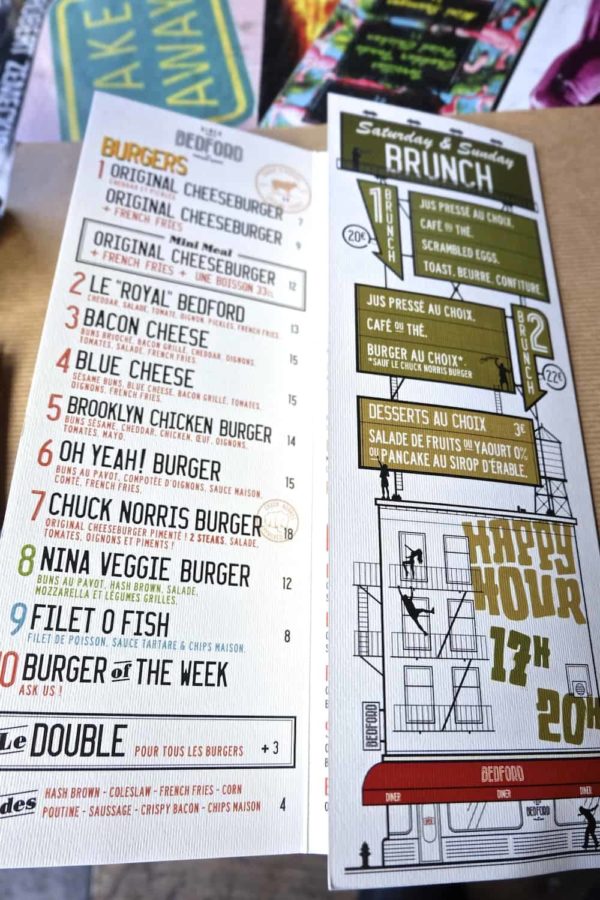 TAKE
AWAY
BEDFORD
BURGERS
1 ORIGINAL CHEESEBURGER 7
CHEDDAR ET PICKLES
ORIGINAL CHEESEBURGER 9
+ FRENCH FRIES
Mini Meal
ORIGINAL CHEESEBURGER 12
+ FRENCH FRIES + UNE BOISSON 33CL
2 LE "ROYAL" BEDFORD 13
CHEDDAR, SALADE, TOMATE, OIGNON, PICKLES, FRENCH FRIES.
3 BACON CHEESE 15
BUNS BRIOCHÉ, BACON GRILLÉ, CHEDDAR, OIGNONS,
TOMATES, SALADE, FRENCH FRIES.
4 BLUE CHEESE 15
SÉSAME BUNS, BLUE CHEESE, BACON GRILLÉ, TOMATES,
OIGNONS, FRENCH FRIES.
5 BROOKLYN CHICKEN BURGER 14
BUNS SÉSAME, CHEDDAR, CHICKEN, ŒUF, OIGNONS,
TOMATES, MAYO.
6 OH YEAH! BURGER 15
BUNS AU PAVOT, COMPOTÉE D'OIGNONS, SAUCE MAISON,
COMTÉ, FRENCH FRIES.
7 CHUCK NORRIS BURGER 18
ORIGINAL CHEESEBURGER PIMENTÉ ! 2 STEAKS, SALADE,
TOMATES, OIGNONS ET PIMENTS !
8 NINA VEGGIE BURGER 12
BUNS AU PAVOT, HASH BROWN, SALADE,
MOZZARELLA ET LÉGUMES GRILLÉS.
9 FILET O FISH 8
FILET DE POISSON, SAUCE TARTARE & CHIPS MAISON.
10 BURGER of THE WEEK
ASK US !
Le DOUBLE POUR TOUS LES BURGERS + 3
des HASH BROWN - COLESLAW - FRENCH FRIES - CORN
POUTINE - SAUSSAGE - CRISPY BACON - CHIPS MAISON 4
Saturday & Sunday
BRUNCH
1 BRUNCH
20€
JUS PRESSÉ AU CHOIX,
CAFÉ OU THÉ,
SCRAMBLED EGGS,
TOAST, BEURRE, CONFITURE.
JUS PRESSÉ AU CHOIX,
CAFÉ OU THÉ,
BURGER AU CHOIX*.
*SAUF LE CHUCK NORRIS BURGER
2 BRUNCH
22€
DESSERTS AU CHOIX 3€
SALADE DE FRUITS OU YAOURT 0%
OU PANCAKE AU SIROP D'ÉRABLE.
HAPPY
HOUR
17H
20H
BEDFORD
BEDFORD
DINER DINER DINER
BEDFORD